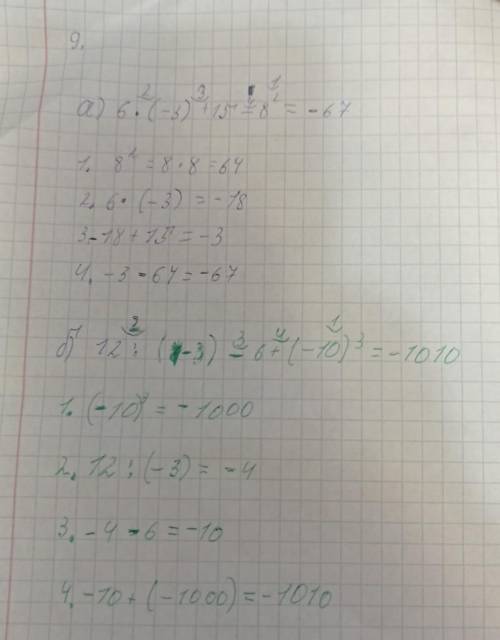 9.
а) 6 · (-3) + 15 - 8² = -67
1. 8² = 8 · 8 = 64
2. 6 · (-3) = -18
3 -18 + 15 = -3
4. -3 - 64 = -67
б) 12 : (-3) - 6 + (-10)³ = -1010
1. (-10)³ = -1000
2. 12 : (-3) = -4
3. -4 - 6 = -10
4. -10 + (-1000) = -1010